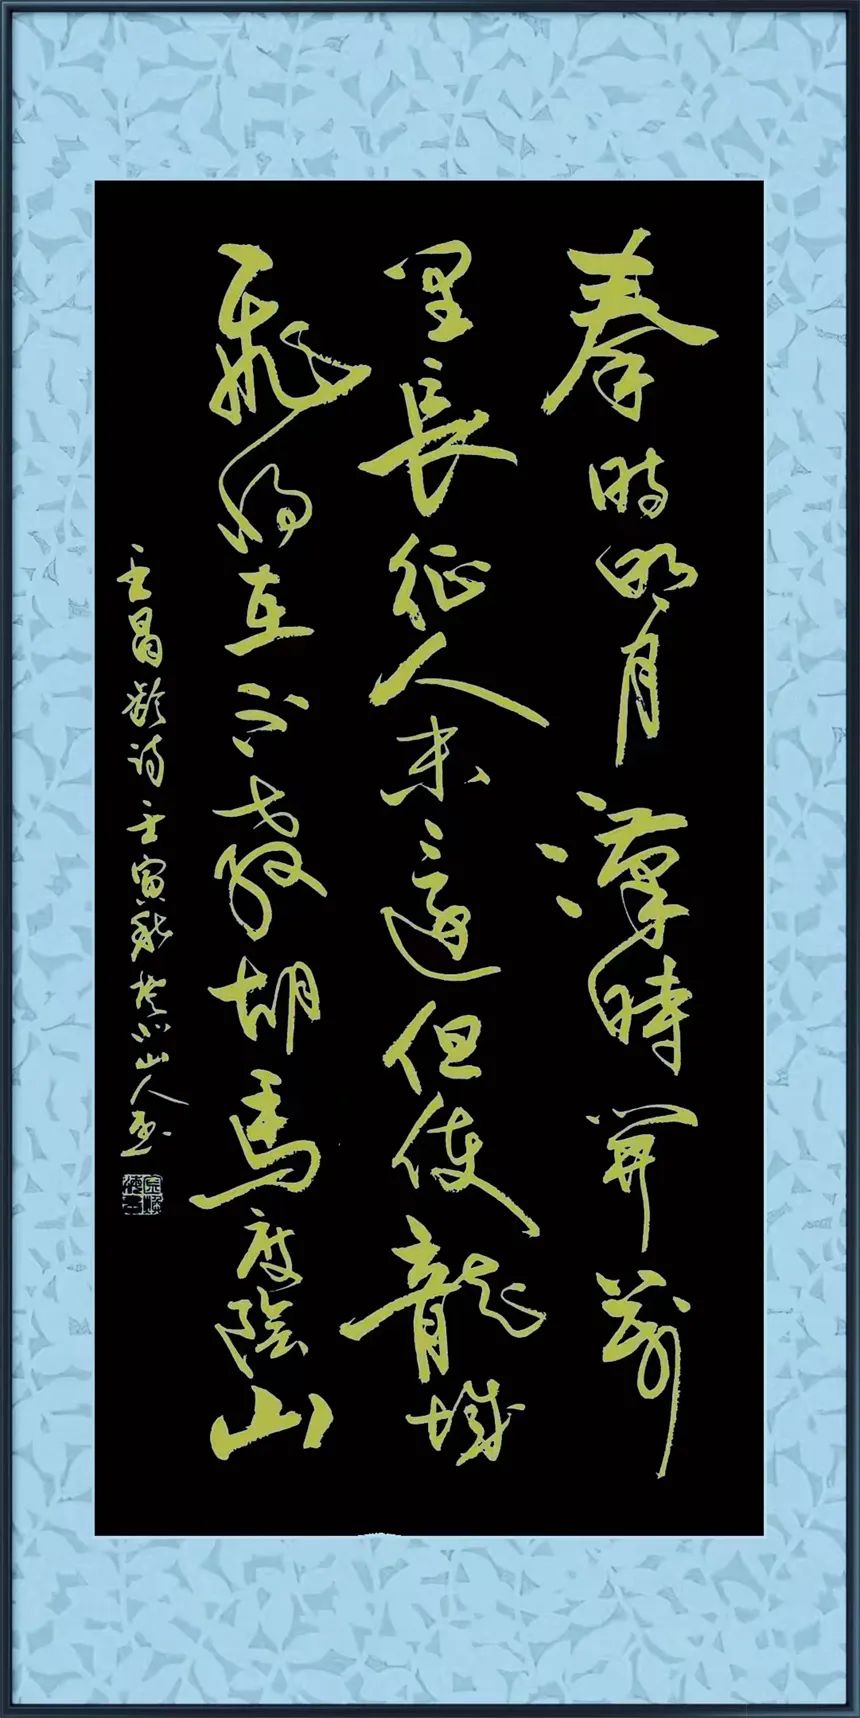 秦時明月漢時關萬
里長征人未還但使龍城
飛將在不教胡馬度陰山
王昌齡詩壬寅秋山人書